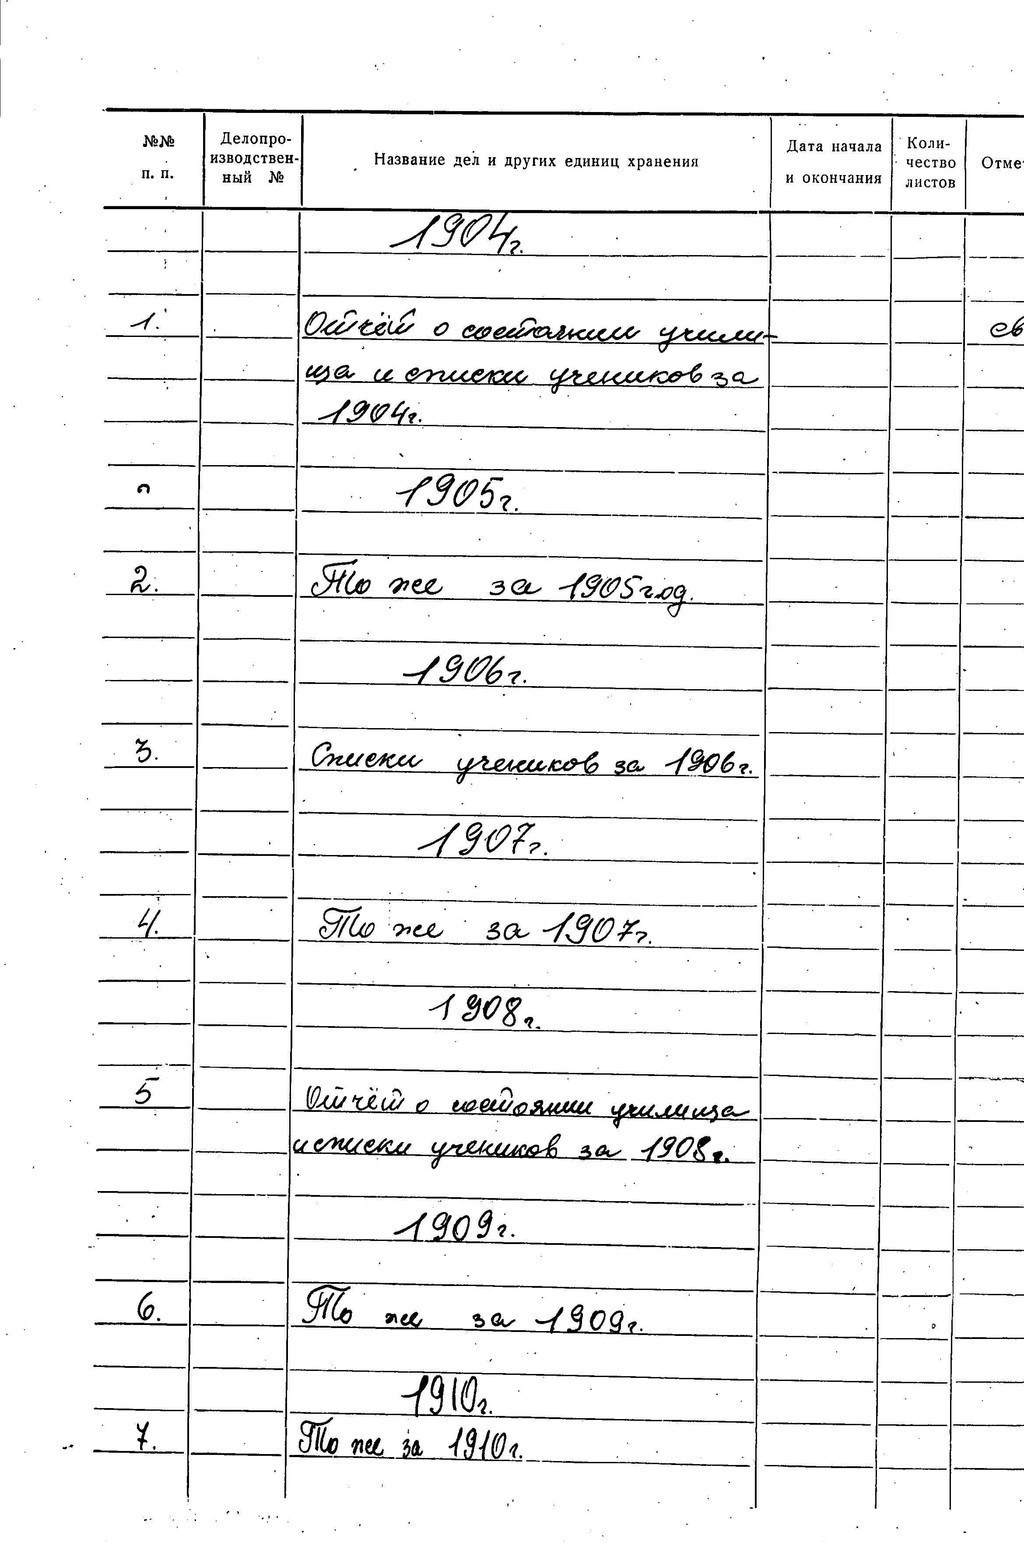 №№ п. п.
Делопро-
изводствен-
ный №
Название дел и других единиц хранения
Дата начала
и окончания
Коли-
чество
листов
Отме
1904г.
1. Отчёт о состоянии учили- св
ща и списки учеников за
1904г.
1905г.
2. То же за 1905год.
1906г.
3. Списки учеников за 1906г.
1907г.
4. То же за 1907г.
1908г.
5 Отчёт о состоянии училища
и списки учеников за 1908г.
1909г.
6. То же за 1909г.
1910г.
7. То же за 1910г.